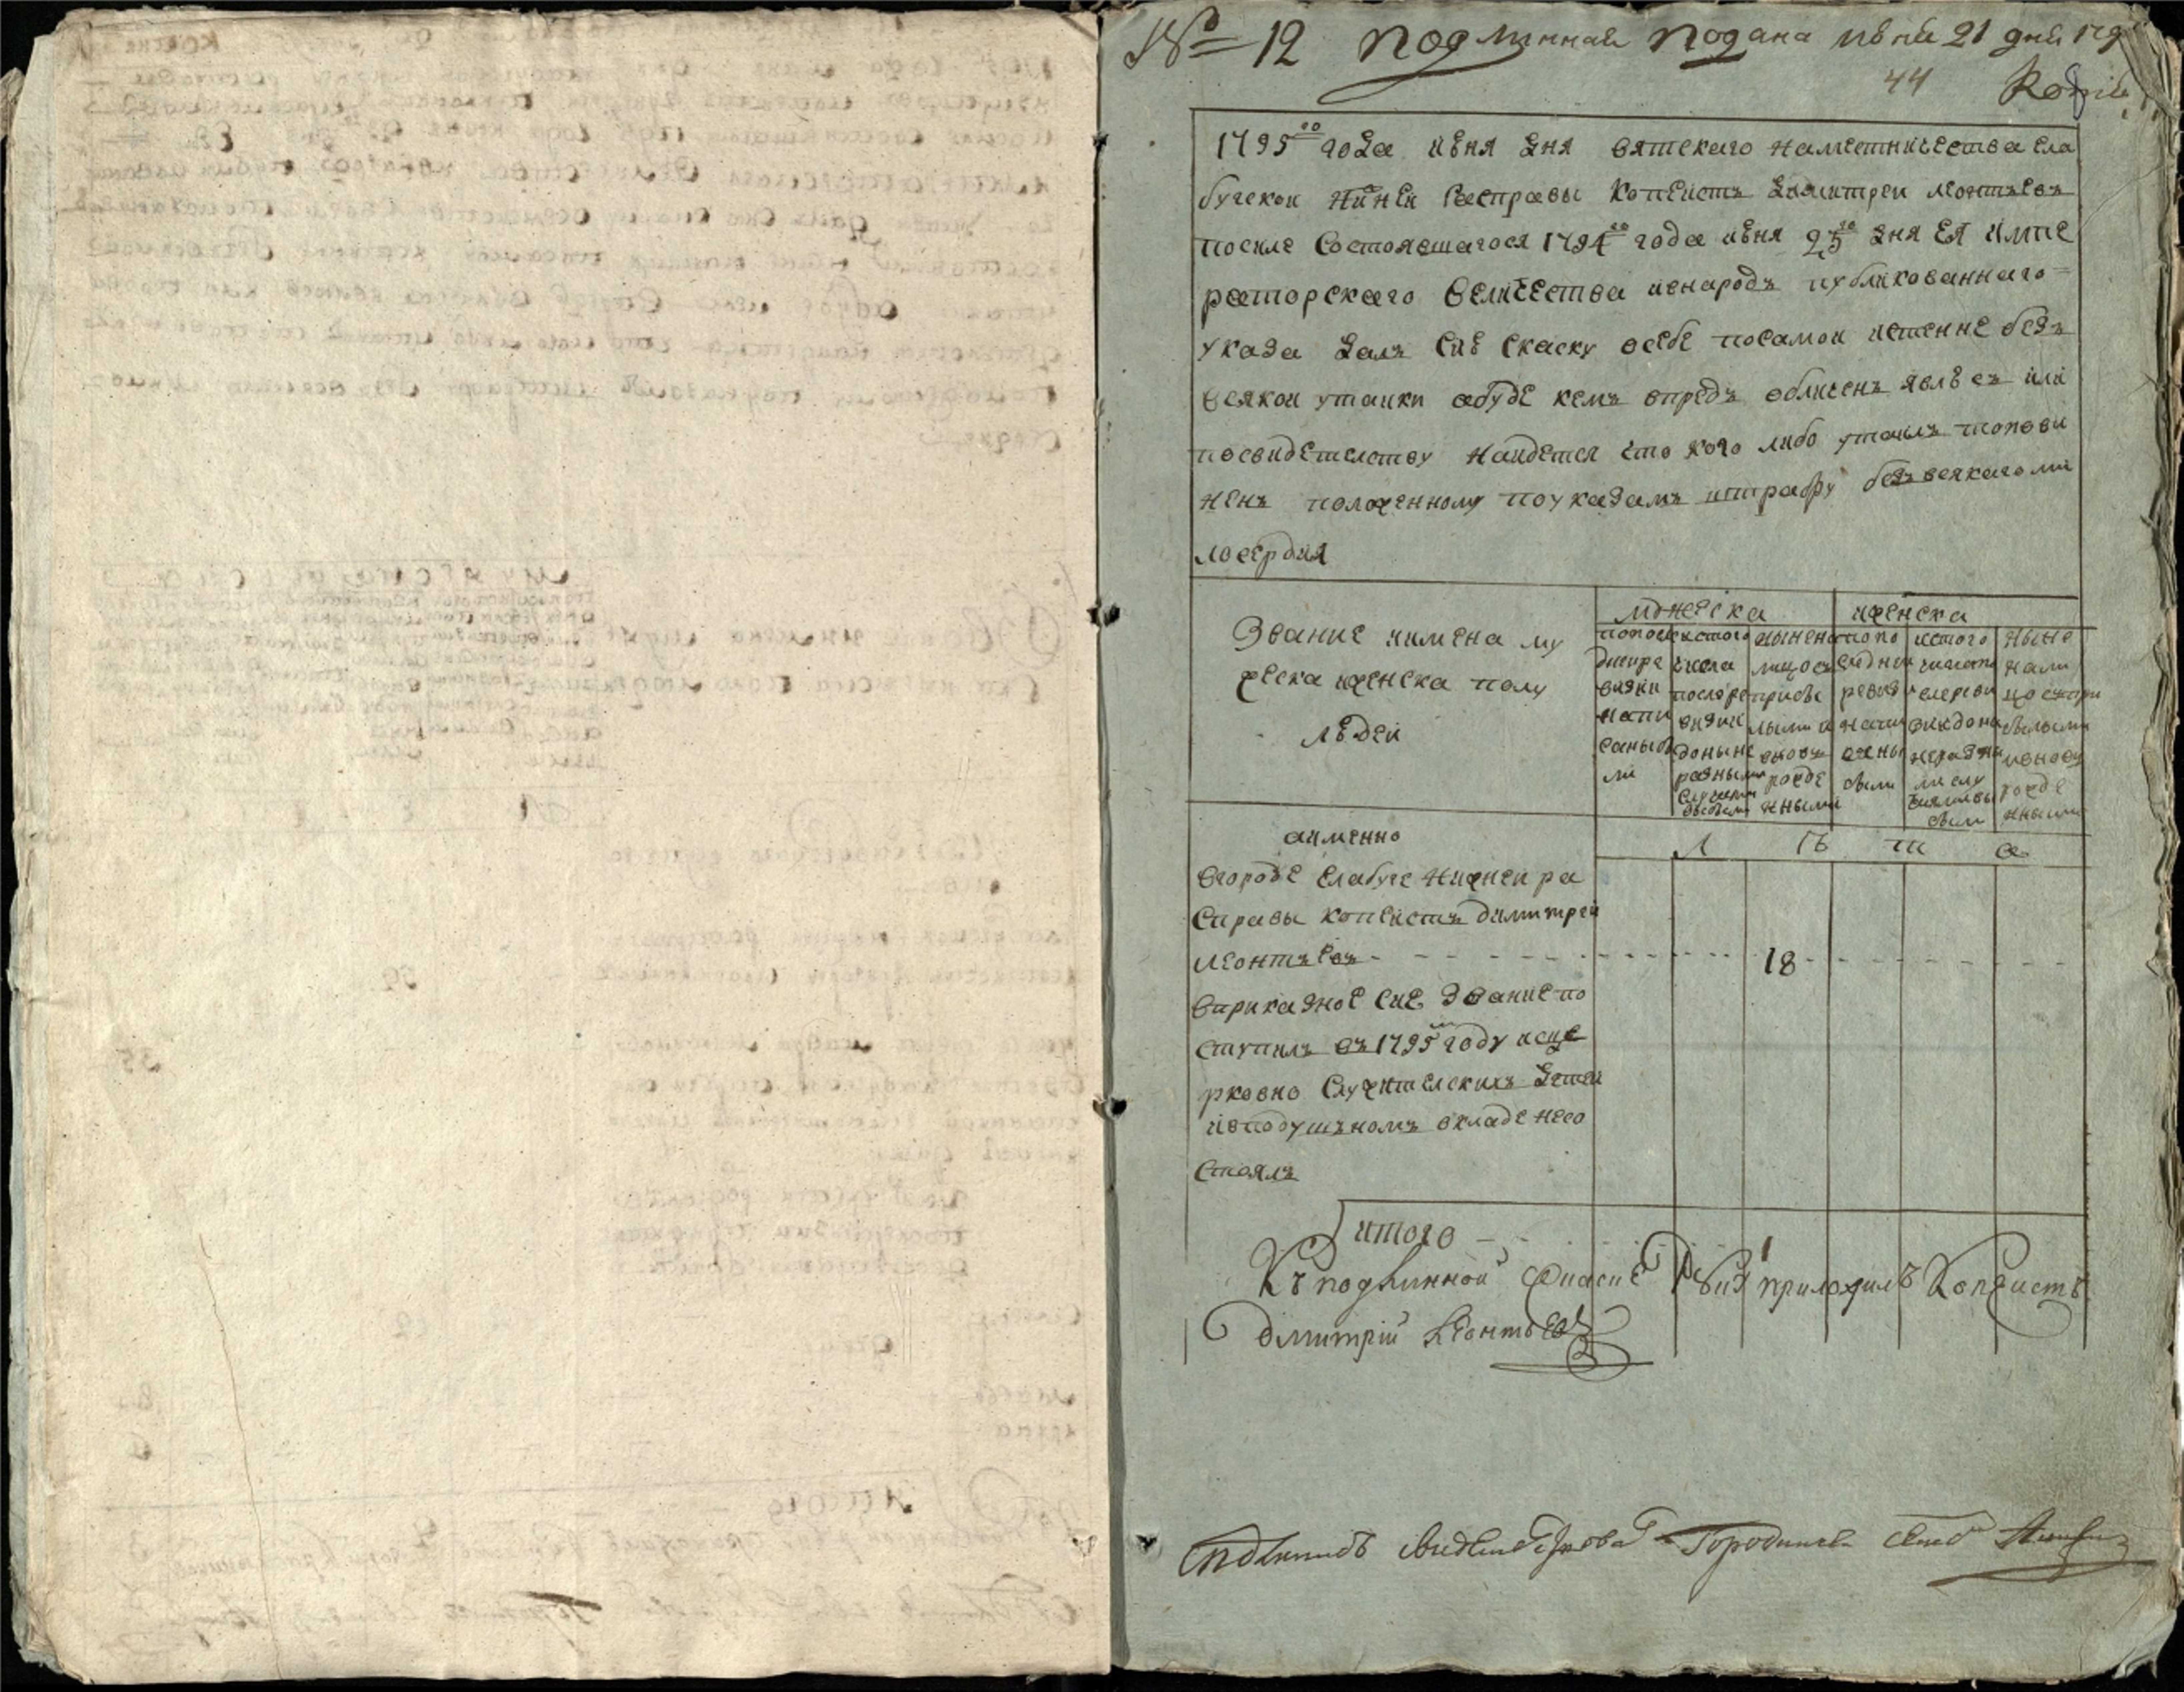 № 12 подлинная подана июня 21 дня 179
44 Копiя
1795го года июня дня вятскаго наместничества ела
бугской нижней расправы копеистъ дмитреи леонтьевъ
посиле состоявшагося 1794го года июня 23го дня ея импе
раторскаго величества ивнародъ публикованнаго
указа далъ сию скаску осебе посамои истенне безъ
всякои утаики абуде кемъ впредь обличенъ явлюсь или
посвидетелству наидется что кого либо утаилъ топови
ненъ положенному поуказамъ штрафу безъ всякаго ми
лосердия
Звание иимена му
жеска иженска полу
людеи
мужеска
иженска
попосле
днеи ре
визии
напи
саны бы
ли
истого
числа
после ре
визии
доныне
разными
случаями
выбыло
ныне на
лицо съ
прибы
лыми и
вновь
рожде
нными
попо
следнеи
ревизи
напи
саны
были
истого
числа по
сле реви
зии доны
не разны
ми слу
чаями вы
были
ныне
нали
цо съ при
былыми
ивновь
рожде
нными
аимянно
л ѣ т а
вгороде елабуге нижнеи ра
справы копеистъ димитреи
леонтьевъ - - - 18 - - -
вприказное сие звание по
ступилъ въ 1795м году исце
рковно служителскихъ детеи
ивподушномъ окладе несо
стоялъ
итого - - 1
Къ подлинной скаске руку приложилъ Копеистъ
Димитрiй Леонтьевъ
Съ подлинною свидетелствовалъ Городничей